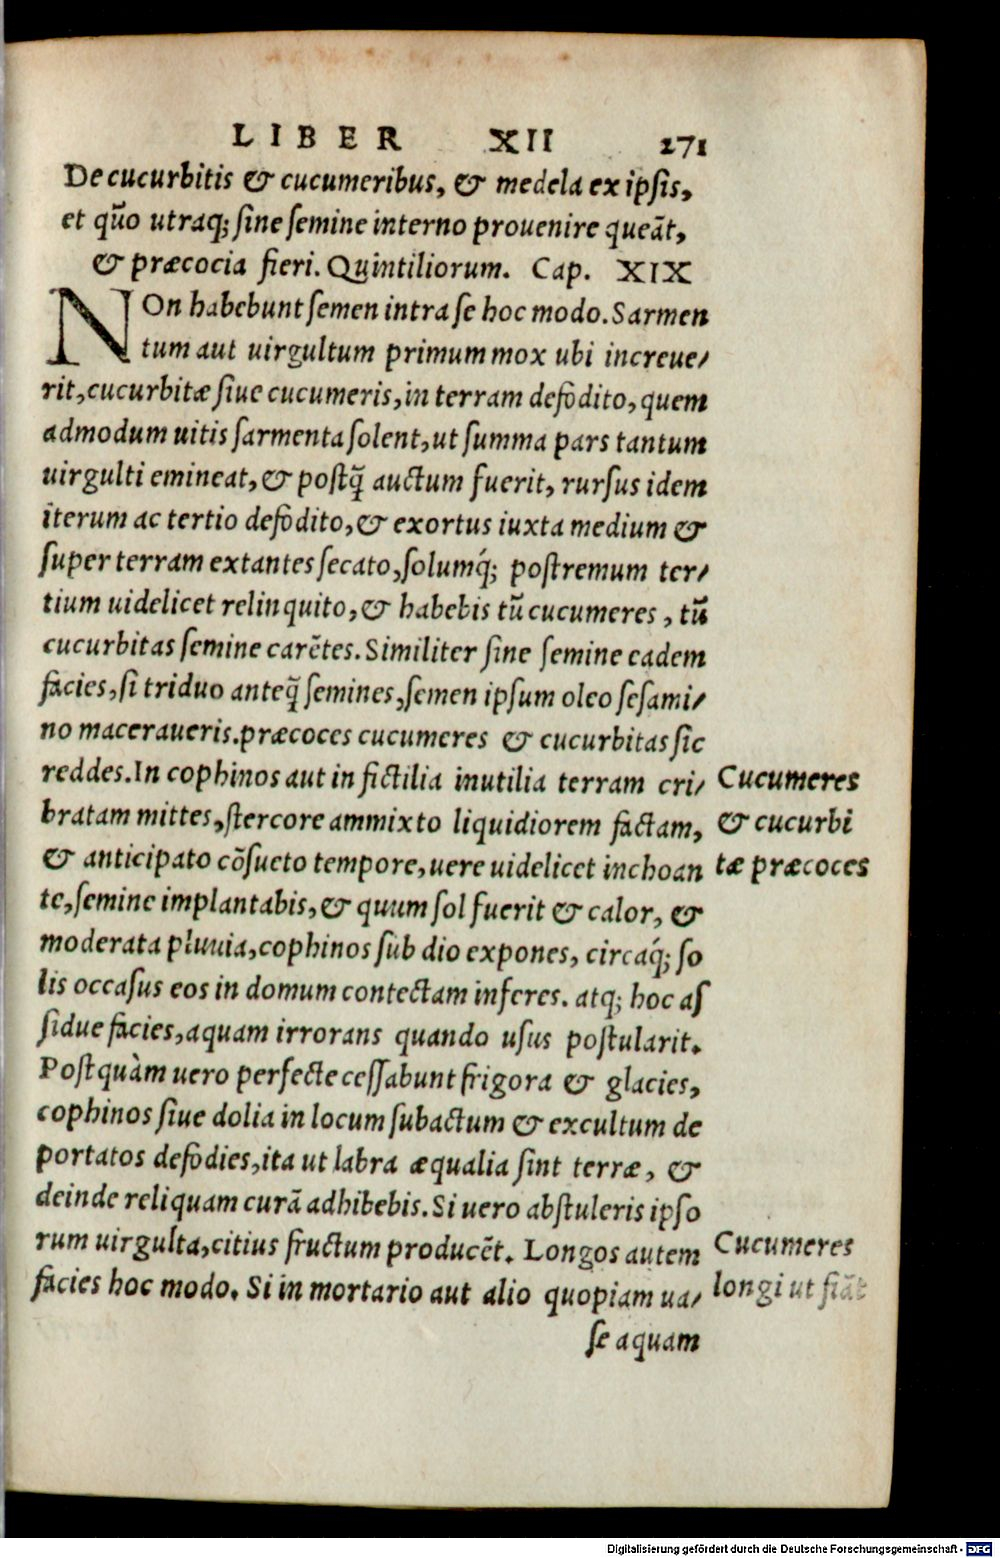 LIBER XII 271
De cucurbitis & cucumeribus, & medela ex ipsis,
et quō utraq; sine semine interno prouenire queāt,
& præcocia fieri. Quintiliorum. Cap. XIX
NOn habebunt semen intra se hoc modo. Sarmen
tum aut uirgultum primum mox ubi increue/
rit, cucurbitæ siue cucumeris, in terram defodito, quem
admodum uitis sarmenta solent, ut summa pars tantum
uirgulti emineat, & postq̃ auctum fuerit, rursus idem
iterum ac tertio defodito, & exortus iuxta medium &
super terram extantes secato, solumq́; postremum ter/
tium uidelicet relinquito, & habebis tū cucumeres, tū
cucurbitas semine carētes. Similiter sine semine eadem
facies, si triduo anteq̃ semines, semen ipsum oleo sesami/
no maceraueris. præcoces cucumeres & cucurbitas sic
reddes. In cophinos aut in fictilia inutilia terram cri/
bratam mittes, stercore ammixto liquidiorem factam,
& anticipato cōsueto tempore, uere uidelicet inchoan
te, semine implantabis, & quum sol fuerit & calor, &
moderata pluuia, cophinos sub dio expones, circaq́; so
lis occasus eos in domum contectam inferes. atq; hoc as
sidue facies, aquam irrorans quando usus postularit.
Postquàm uero perfecte cessabunt frigora & glacies,
cophinos siue dolia in locum subactum & excultum de
portatos defodies, ita ut labra æqualia sint terræ, &
deinde reliquam curā adhibebis. Si uero abstuleris ipso
rum uirgulta, citius fructum producēt. Longos autem
facies hoc modo. Si in mortario aut alio quopiam ua/
se aquam
Cucumeres
& cucurbi
tæ præcoces
Cucumeres
longi ut fiāt
Digitalisierung gefördert durch die Deutsche Forschungsgemeinschaft - DFG